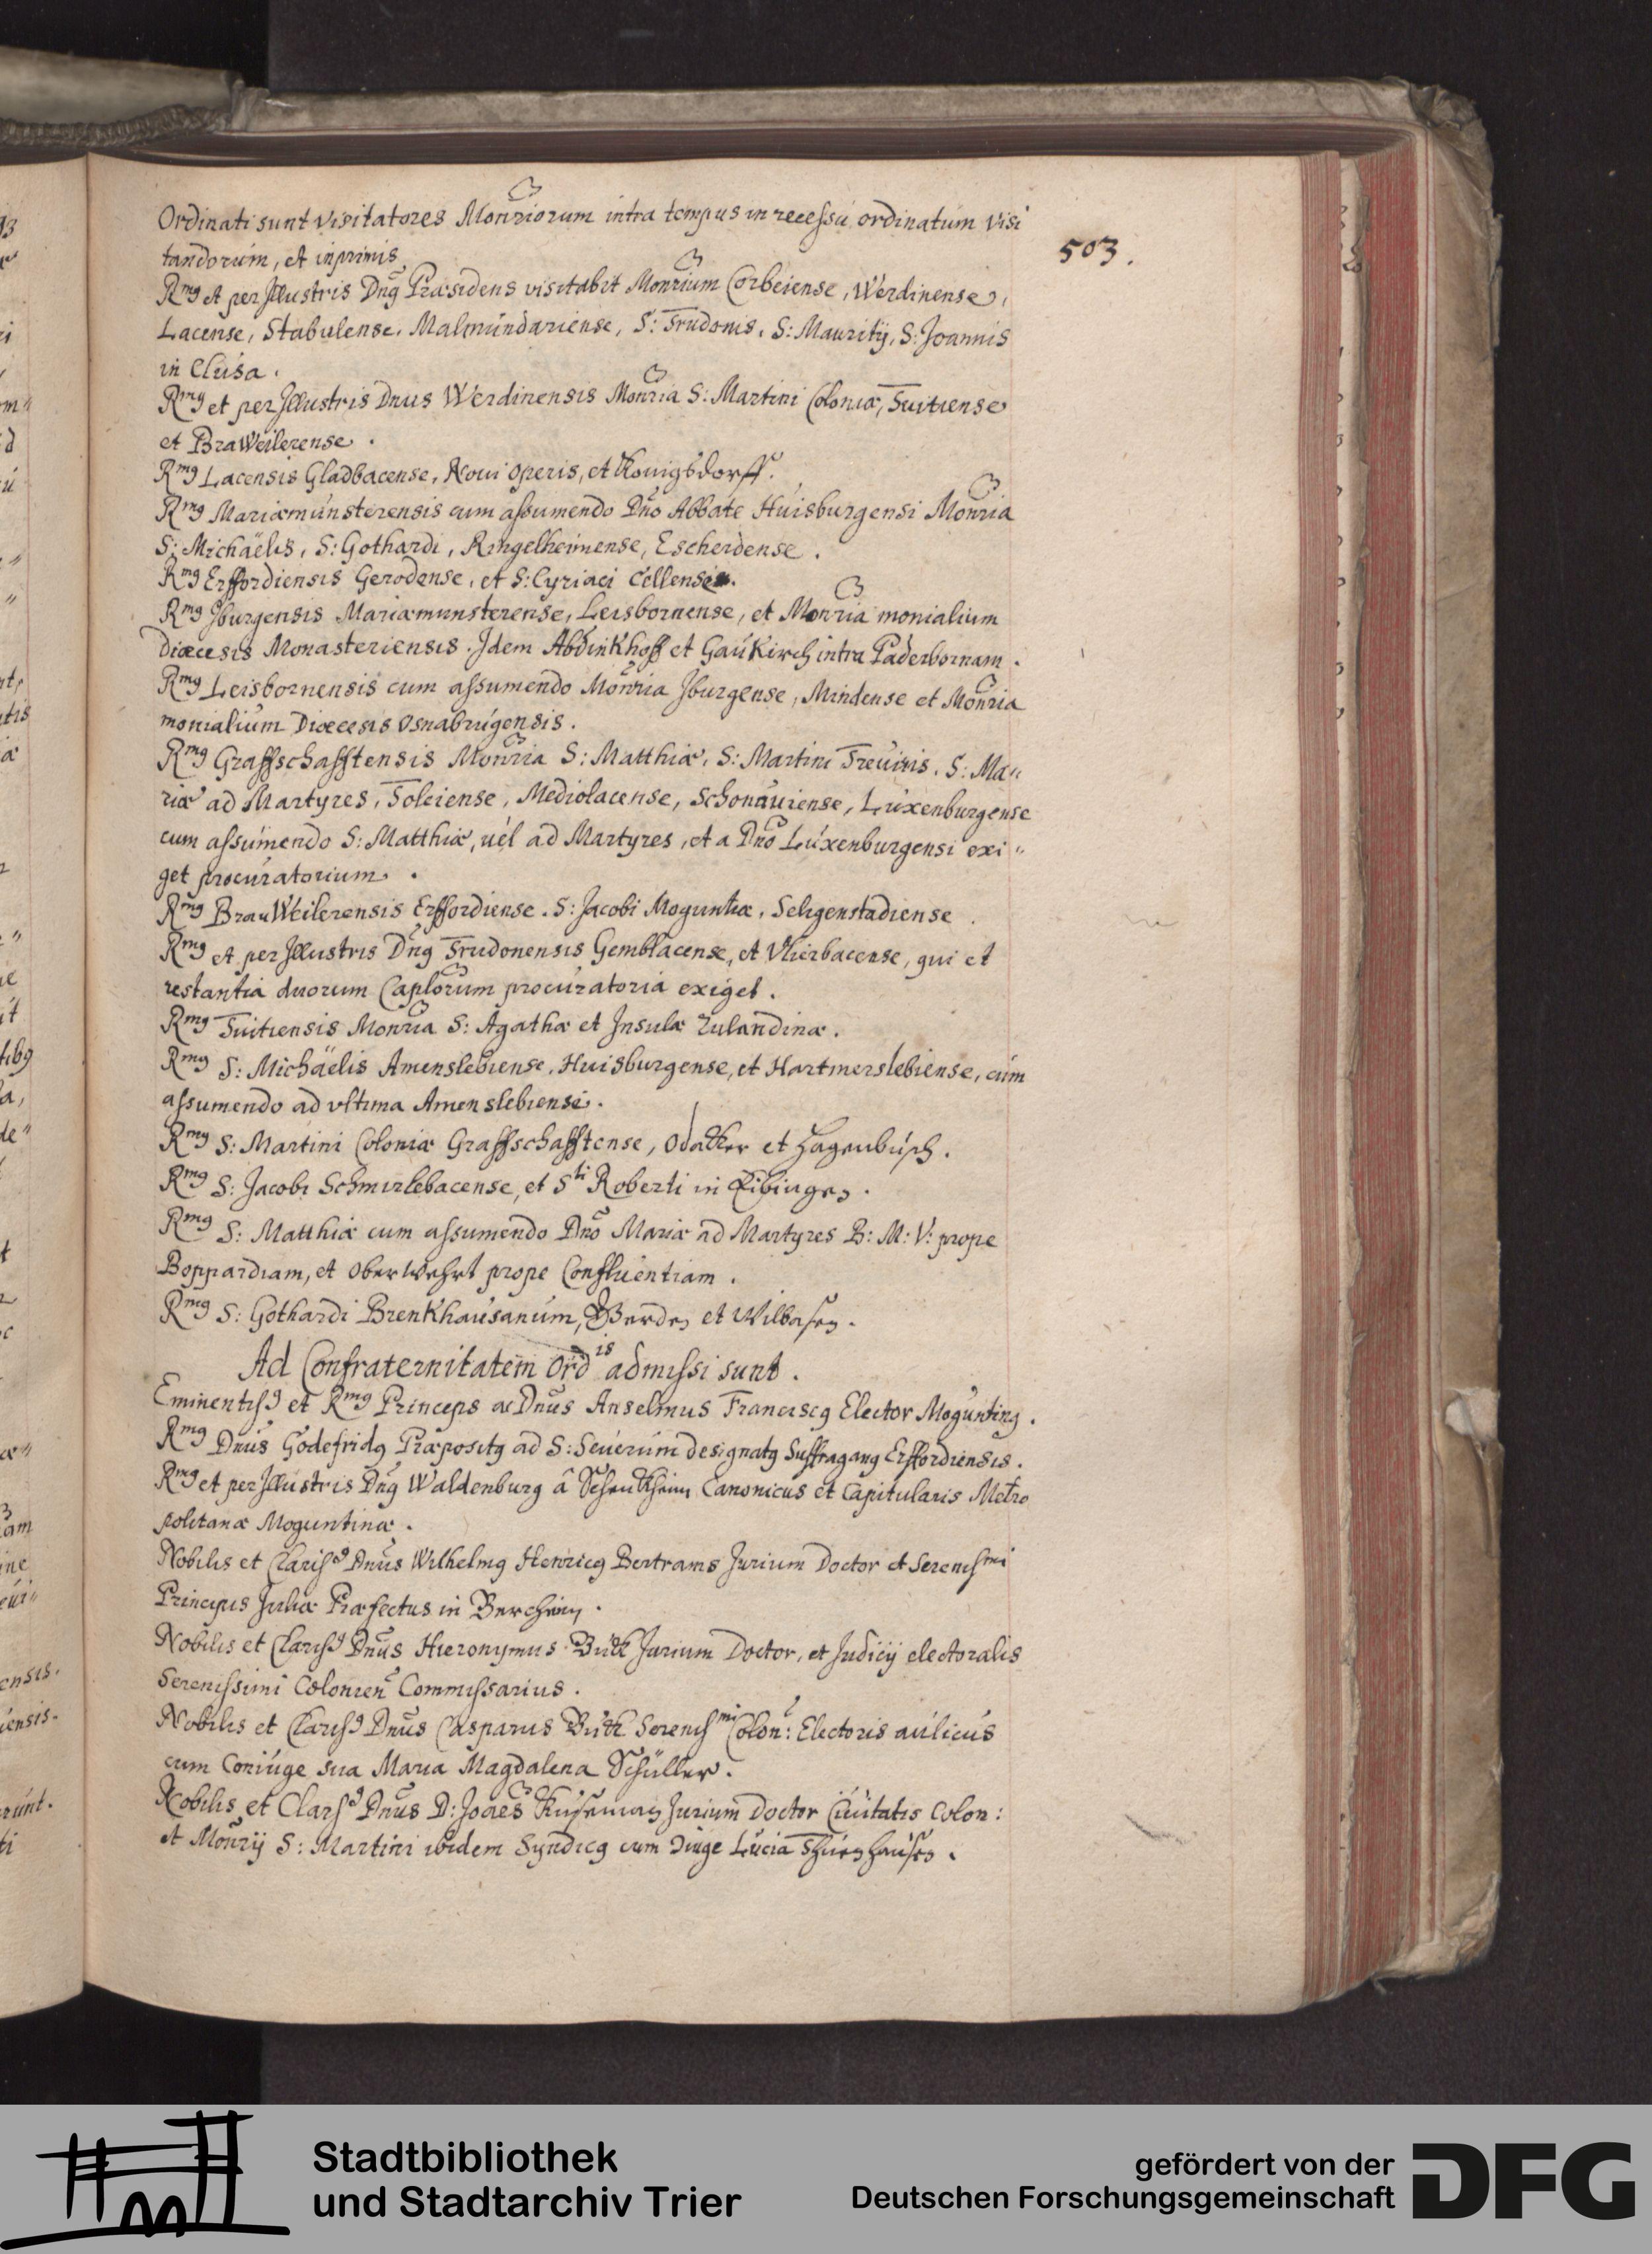 Ordinati sunt visitatores Monriorum intra tempus in recessu ordinatum visi
tandorum, et inprimis
503.
Rmg et perJllustris Dng Præsidens visitabit Monrium Corbeiense, Werdinense,
Lacense, Stabulense, Malmundariense, S: Trudonis, S: Mauritij, S: Joannis
in Clusa.
Rmg et perJllustris Dnus Werdinensis Monria S: Martini Coloniæ, Tuitiense
et BraWeilerense.
Rmg Lacensis Gladbacense, Noui operis, et Konigsdorff.
Rmg Mariæmunsterensis cum assumendo Dno Abbate Huisburgensi Monria
S: Michäelis, S: Gothardi, Ringelheimense, Escherdense.
Rmg Erffordiensis Gerodense, et S: Cyriaci Cellense.
Rmg Jburgensis Mariæmunsterense, Leisbornense, et Monria monialium
Diœcesis Monasteriensis. Jdem Abdinkhoff et Gaukirch intra Paderbornam.
Rmg Leisbornensis cum assumendo Monria Jburgense, Mindense et Monria
monialium Diœcesis Osnabrugensis.
Rmg Graffschafftensis Monria S: Matthiæ, S: Martini Treuiris, S: Ma"
riæ ad Martyres, Toleiense, Mediolacense, Schonauiense, Luxenburgense
cum assumendo S: Matthiæ, uel ad Martyres, et a Dno Luxenburgensi exi"
get procuratorium.
Rmg BrauWeilerensis Erffordiense, S: Jacobi Moguntiæ, Seligenstadiense
Rmg et perJllustris Dng Trudonensis Gemblacense, et Vlierbacense, qui et
restantia duorum Caplorum procuratoria exiget.
Rmg Tuitiensis Monria S: Agathæ et Jnsulæ Rulandinæ.
Rmg S: Michäelis Amenslebiense, Huisburgense, et Hartmerslebiense, cum
assumendo ad vltima Amenslebiensi.
Rmg S: Martini Coloniæ Graffschafftense, Odacker et Hagenbusch.
Rmg S: Jacobi Schmirlebacense, et Sti Roberti in Eibingen.
Rmg S: Matthiæ cum assumendo Dno Mariæ ad Martyres B: M: V: prope
Boppardiam, et Oberwehrt prope Confluentiam.
Rmg S: Gothardi Brenkhausanum, Gherden et Wilbasen.
Ad Confraternitatem Ordis admissi sunt.
Eminentiss9 et Rmg Princeps ac Dnus Anselmus Franciscg Elector Mogunting.
Rmg Dnus Godefridg Præpositg ad S: Seuerum designatg Suffragang Erffordiensis.
Rmg et perJllustris Dng Waldenburg â Schenkhein Canonicus et Capitularis Metro
politanæ Moguntinæ.
Nobilis et Clariss9 Dnus Wilhelmg Henricg Bertrams Jurium Doctor et Serenissmi
Principis Juliæ Præfectus in Bercheim.
Nobilis et Clariss9 Dnus Hieronymus Bück Jurium Doctor, et Judicij electoralis
Serenissimi Colonien Commissarius.
Nobilis et Clariss9 Dnus Casparus Bück Serenissmi Colon: Electoris aulicus
cum Coniuge sua Maria Magdalena Schüller.
Nobilis et Clariss9 Dnus D: Joaes Jurium Doctor Ciuitatis Colon:
et Monrij S: Martini ibidem Syndicg cum Lucia
Stadtbibliothek
und Stadtarchiv Trier
gefördert von der
Deutschen Forschungsgemeinschaft
DFG